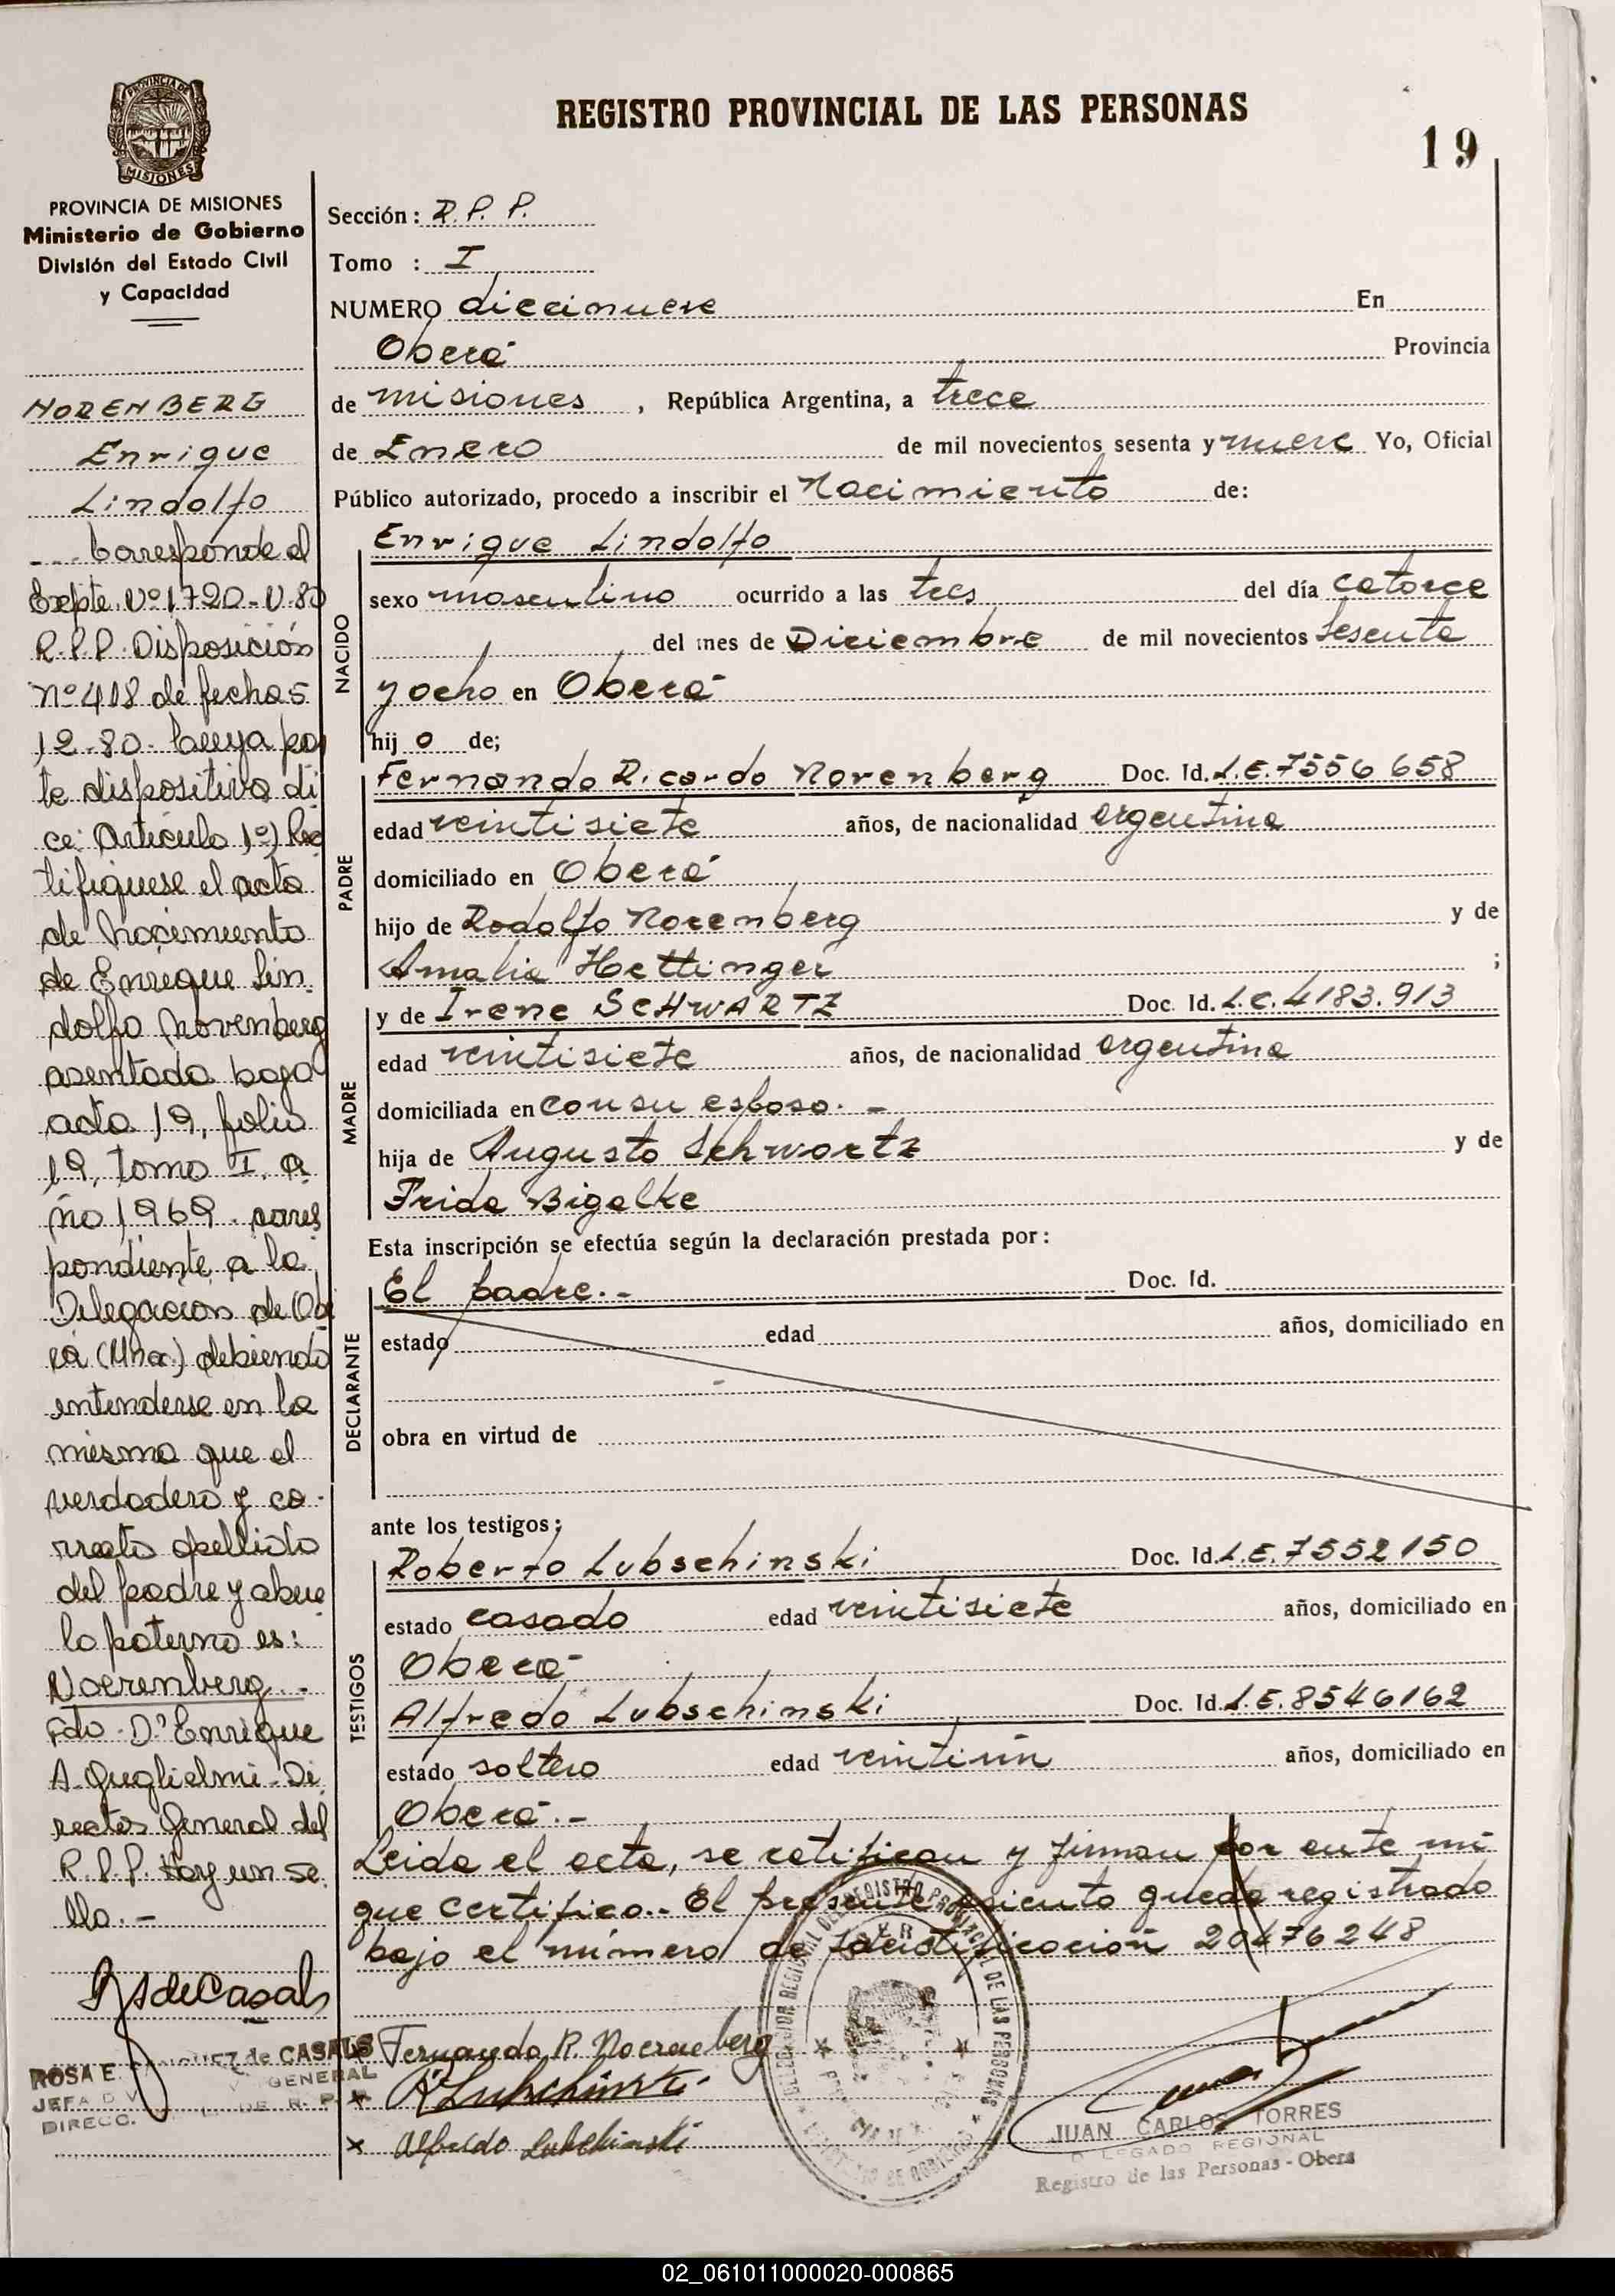 REGISTRO PROVINCIAL DE LAS PERSONAS
19
PROVINCIA DE
MISIONES
PROVINCIA DE MISIONES
Ministerio de Gobierno
División del Estado Civil
y Capacidad
NORENBERG
Enrique
Lindolfo
Corresponde al
Expte. Nº 1720-N-80
R.P.P. Disposición
nº 418 de fecha 5
12-80. Cuya par
te dispositiva di
ce: Artículo 1º) Rec
tifiquese el acta
de Nacimiento
de Enrique Lin
dolfo Norenberg
asentada bajo
acta 19, folio
19, tomo I. a
ño 1969. corres
pondiente a la
Delegacion de Obe
rá (Mnes.) debiendo
entenderse en la
misma que el
verdadero y co-
rrecto apellido
del padre y abue
lo paterno es:
Noerenberg.-
Fdo. Dr Enrique
A. Guglielmi - Di
rector General del
R.P.P. Hay un se
llo.-
RS de Casals
ROSA E. de CASALS
GENERAL
JEFA
DIREC. R. P.
Sección: R. P. P.
Tomo : I
NUMERO diecinueve En
Oberá Provincia
de misiones , República Argentina, a trece
de Enero de mil novecientos sesenta y nueve Yo, Oficial
Público autorizado, procedo a inscribir el Nacimiento de:
NACIDO
Enrique Lindolfo
sexo masculino ocurrido a las tres del día catorce
del mes de Diciembre de mil novecientos sesenta
y ocho en Oberá
hijo de;
PADRE
Fernando Ricardo Norenberg Doc. Id. L.E. 7556658
edad veintisiete años, de nacionalidad argentina
domiciliado en Oberá
hijo de Rodolfo Norenberg y de
Amalia Hettinger ;
MADRE
y de Irene SCHWARTZ Doc. Id. L.C. 4183.913
edad veintisiete años, de nacionalidad argentina
domiciliada en con su esposo. -
hija de Augusto Schwartz y de
Frida Bigalke
Esta inscripción se efectúa según la declaración prestada por:
DECLARANTE
El padre.- Doc. Id.
estado edad años, domiciliado en
obra en virtud de
ante los testigos;
TESTIGOS
Roberto Lubschinski Doc. Id. L.E. 7552150
estado casado edad veintisiete años, domiciliado en
Oberá
Alfredo Lubschinski Doc. Id. L.E. 8546162
estado soltero edad veintiún años, domiciliado en
Oberá.-
Leida el acta, se ratifican y firman por ante mi
que certifico.- El presente asiento queda registrado
bajo el número de Identificación 20476248
x Fernando R. Noerenberg
x R Lubschinski
x Alfredo Lubchinski
JUAN CARLOS TORRES
DELEGADO REGIONAL
Registro de las Personas - Obera
02_061011000020-000865